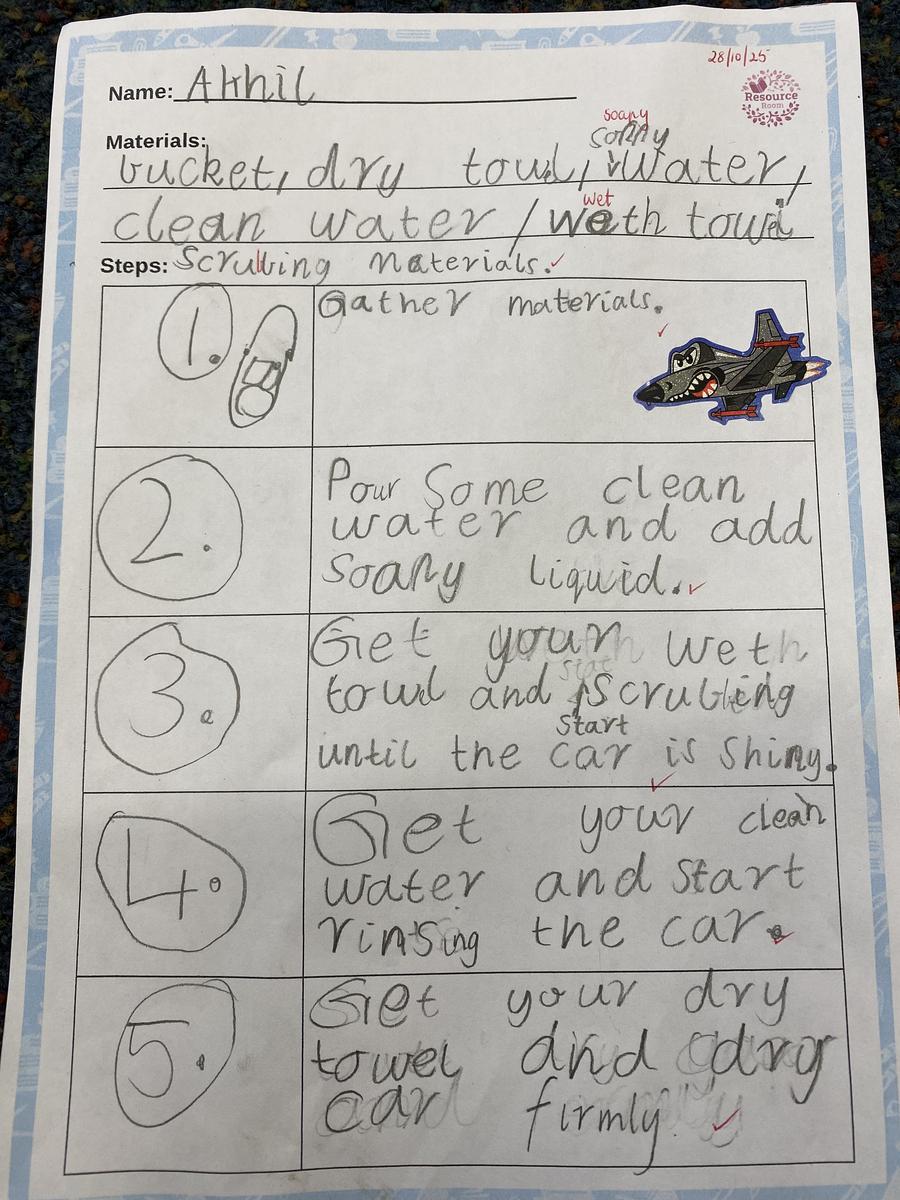 28/10/25
Resource
Room
Name: Akhil
soapy
soapy
Materials:
bucket, dry towl, water,
wet
clean water / weth towel
Steps: Scrubing materials.
1. Gather materials.
2. Pour Some clean
water and add
soapy liquid.
3. Get your weth
towl and Scrubing
start
until the car is shiny.
4. Get your clean
water and start
rinsing the car.
5. Get your dry
towel and dry
car firmly.